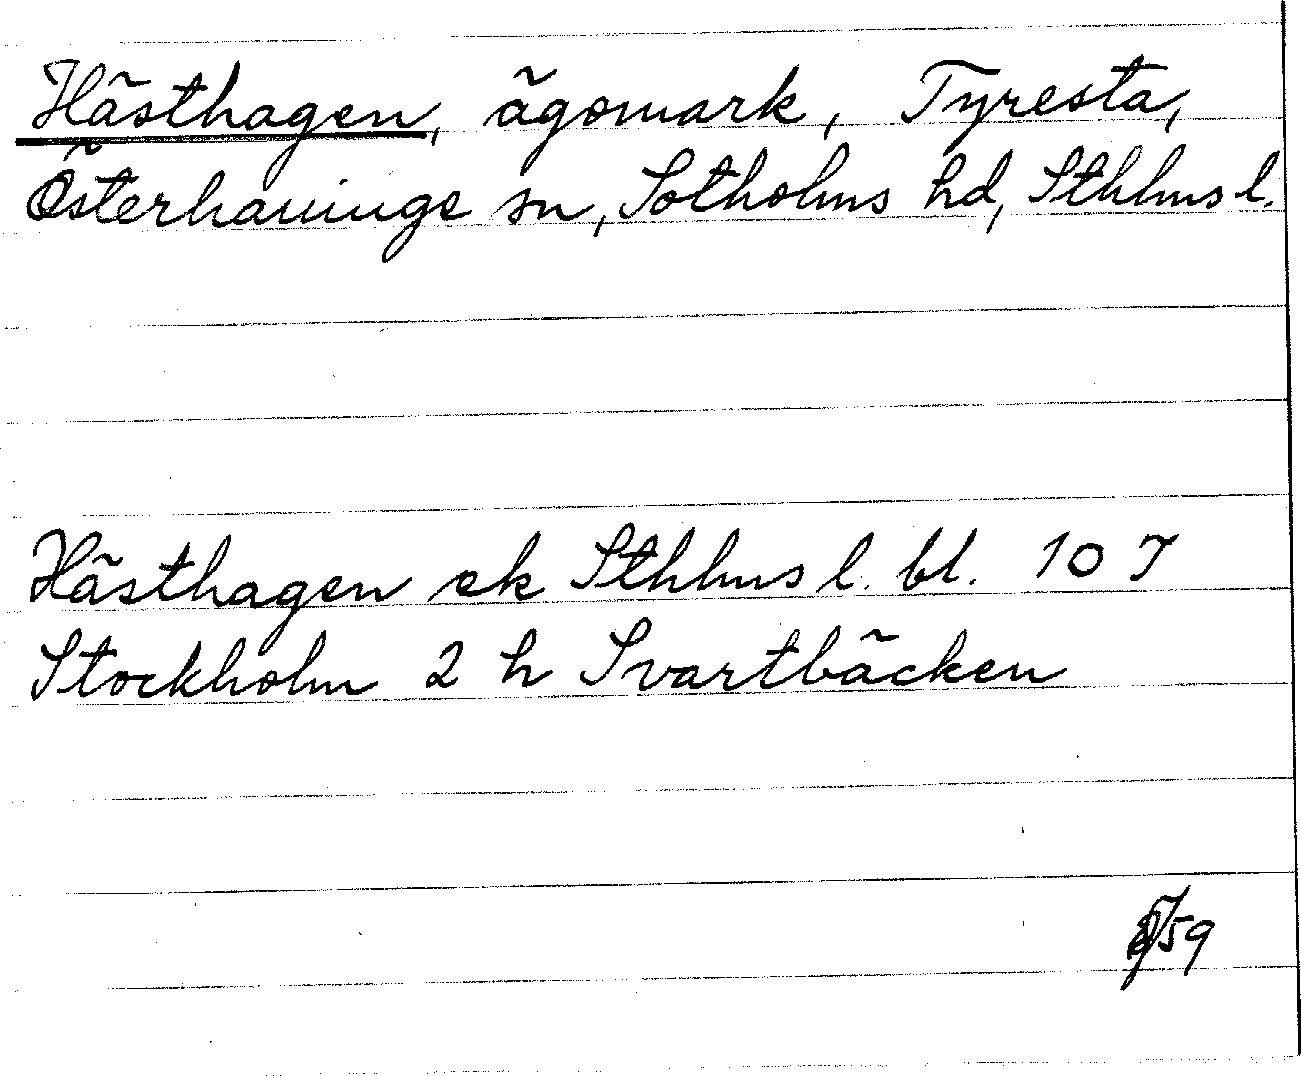 Hästhagen, ägomark, Tyresta,
Österhaninge sn, Sotholms hd, Sthlms l.
Hästhagen ek Sthlms l. bl. 10 I
Stockholm 2 h Svartbäcken
59